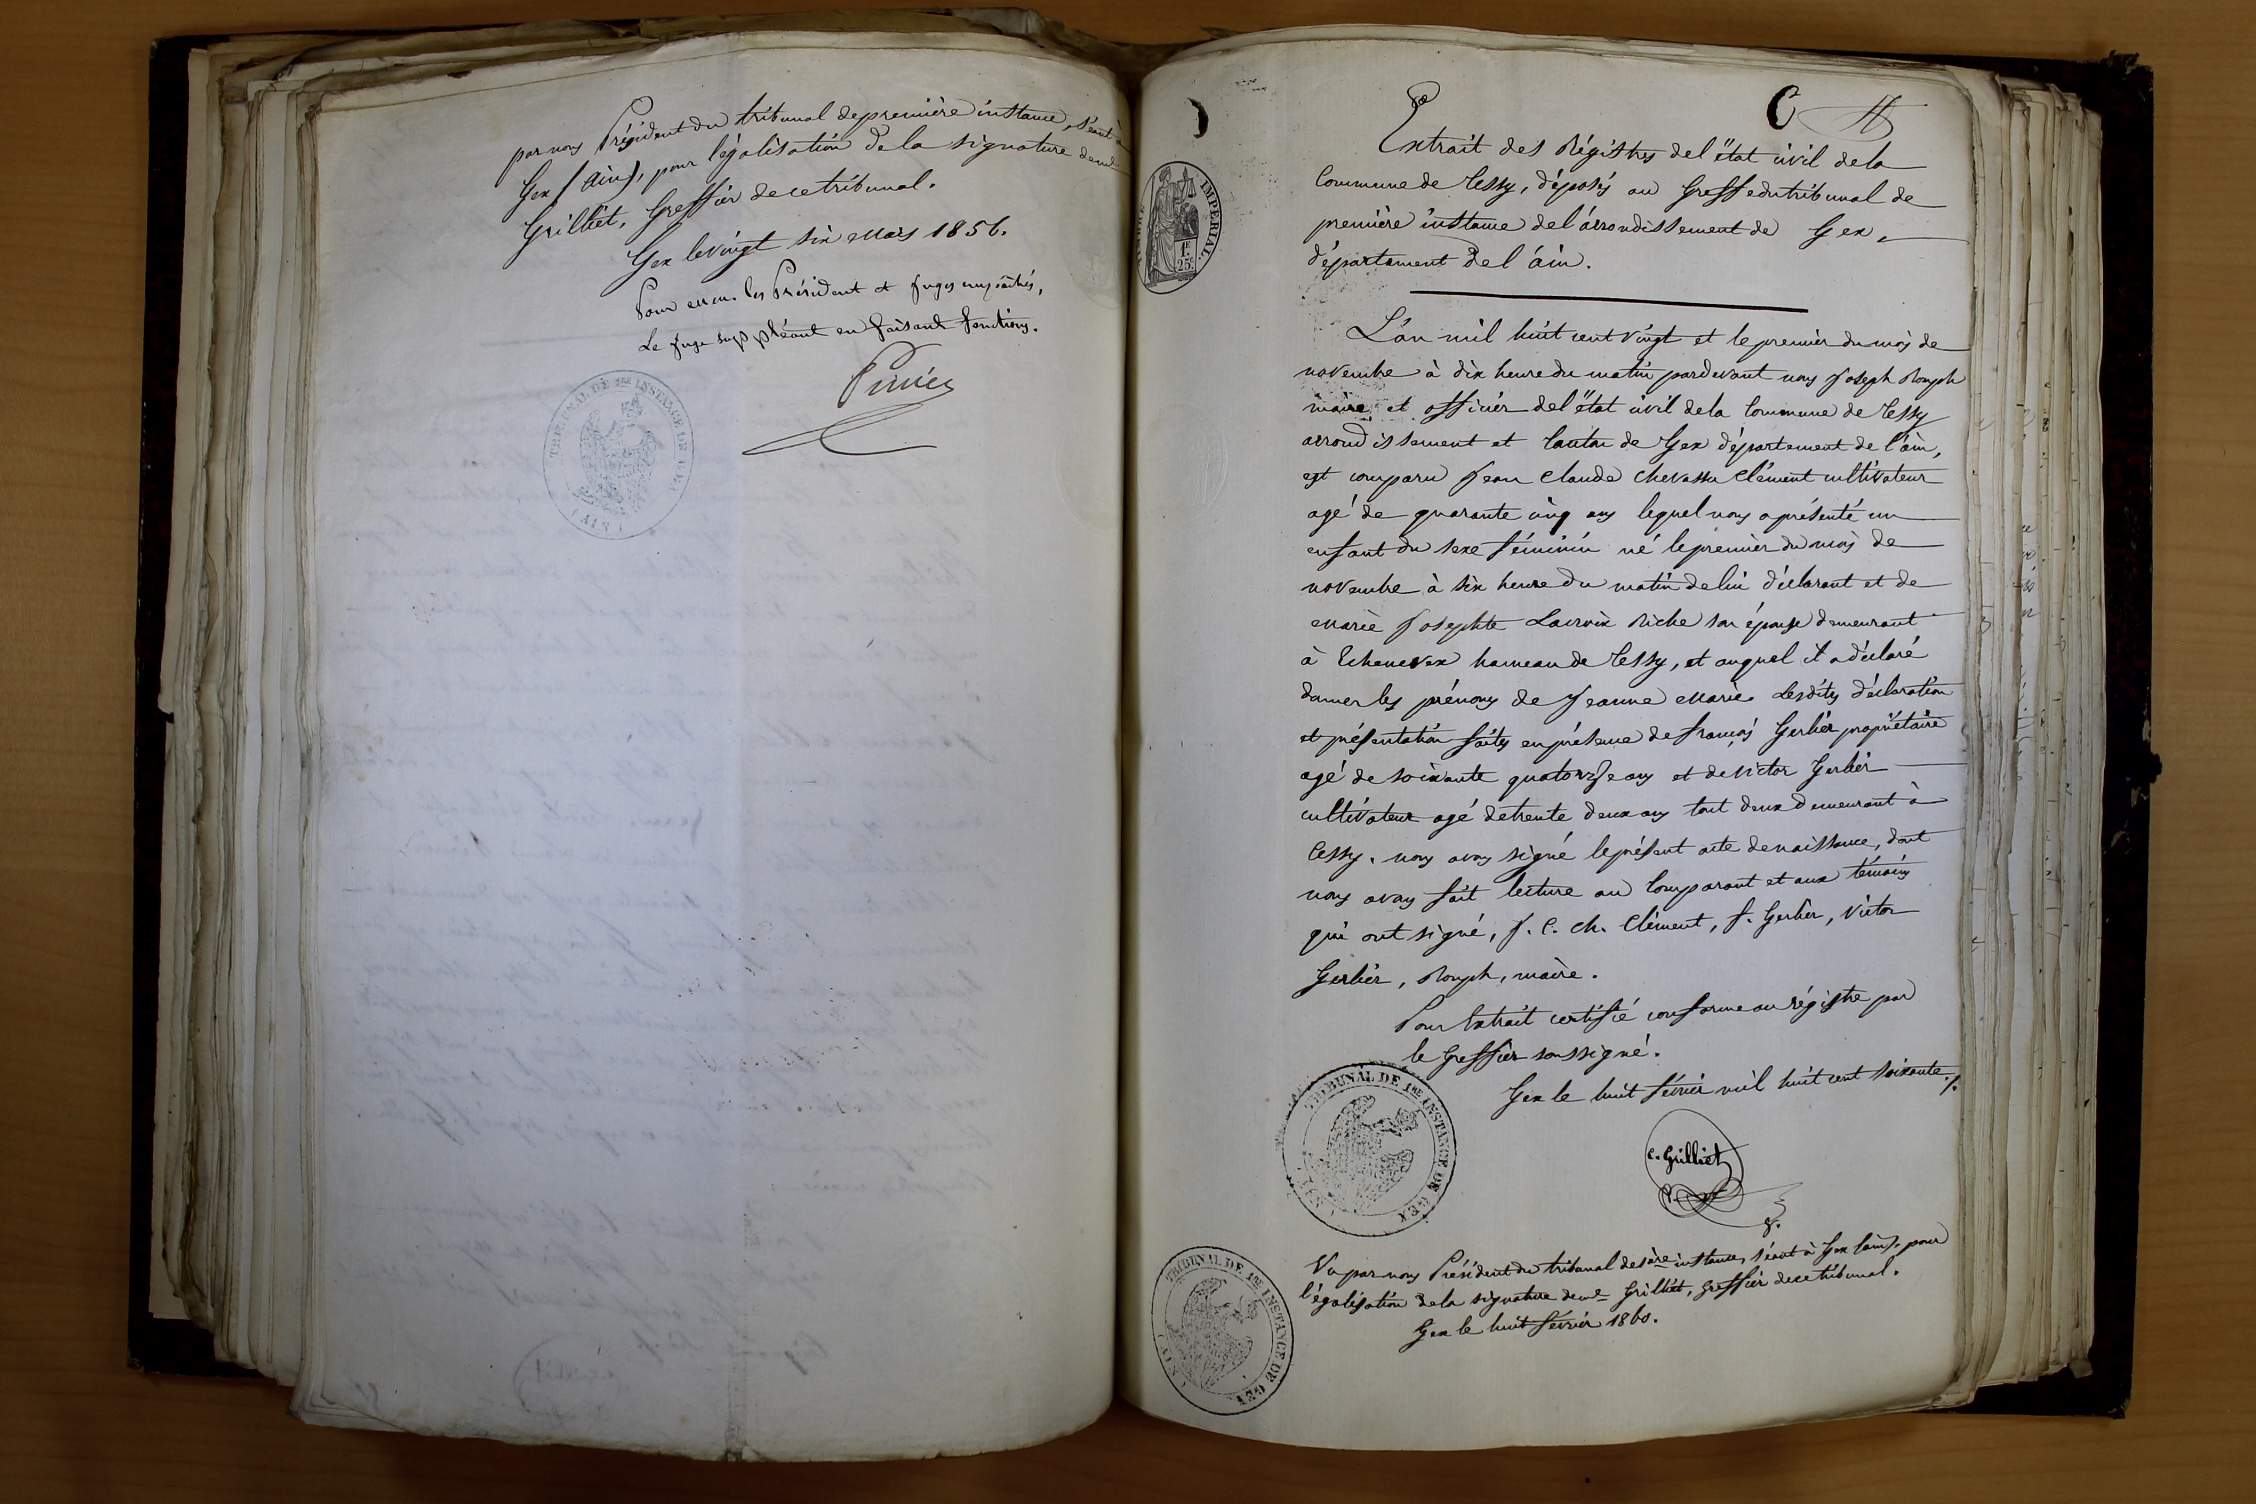 par nous Président du tribunal de première instance, séant à
Gex (Ain), pour légalisation de la signature de me
Grilliet, Greffier de ce tribunal.
Gex le vingt six Mars 1856.
Pour MM. les Président et Juges empêchés,
Le Juge suppléant en faisant fonctions.
TRIBUNAL DE 1RE INSTANCE DE GEX
(AIN)
C
Extrait des Régistres de l'état civil de la
Commune de Cessy, déposés au Greffe du tribunal de
première instance de l'arrondissement de Gex,
département de l'ain.
TIMBRE IMPERIAL
1F
25C
L'an mil huit cent vingt et le premier du mois de
novembre à dix heure du matin pardevant nous Joseph Rouph
maire et officier de l'état civil de la Commune de Cessy
arrondissement et Canton de Gex département de l'ain,
est comparu Jean Claude Chevassu Clément cultivateur
agé de quarante cinq ans lequel nous a présenté un
enfant du sexe féminin né le premier du mois de
novembre à six heure du matin de lui déclarant et de
Marie Josephte Lacroix Riche son épouse demeurant
à Echenevex hameau de Cessy, et auquel il a déclaré
donner les prénoms de Jeanne Marie. Lesdites déclaration
et présentation faites en présence de françois Gerlier propriétaire
agé de soixante quatorze ans et de victor Gerlier
cultivateur agé de trente deux ans tout deux demeurant à
Cessy. nous avons signé le présent acte de naissance, dont
nous avons fait lecture au Comparant et aux témoins
qui ont signé, J. C. Ch. Clément, f. Gerlier, Victor
Gerlier, Rouph, maire.
Pour Extrait certifié conforme au régistre par
le Greffier soussigné.
Gex le huit février mil huit cent soixante./.
C. Grilliet
TRIBUNAL DE 1RE INSTANCE DE GEX
(AIN)
Vu par nous Président du tribunal de 1ère instance, séant à Gex (ain), pour
légalisation de la signature de me Grilliet, Greffier de ce tribunal.
Gex le huit février 1860.
TRIBUNAL DE 1RE INSTANCE DE GEX
(AIN)